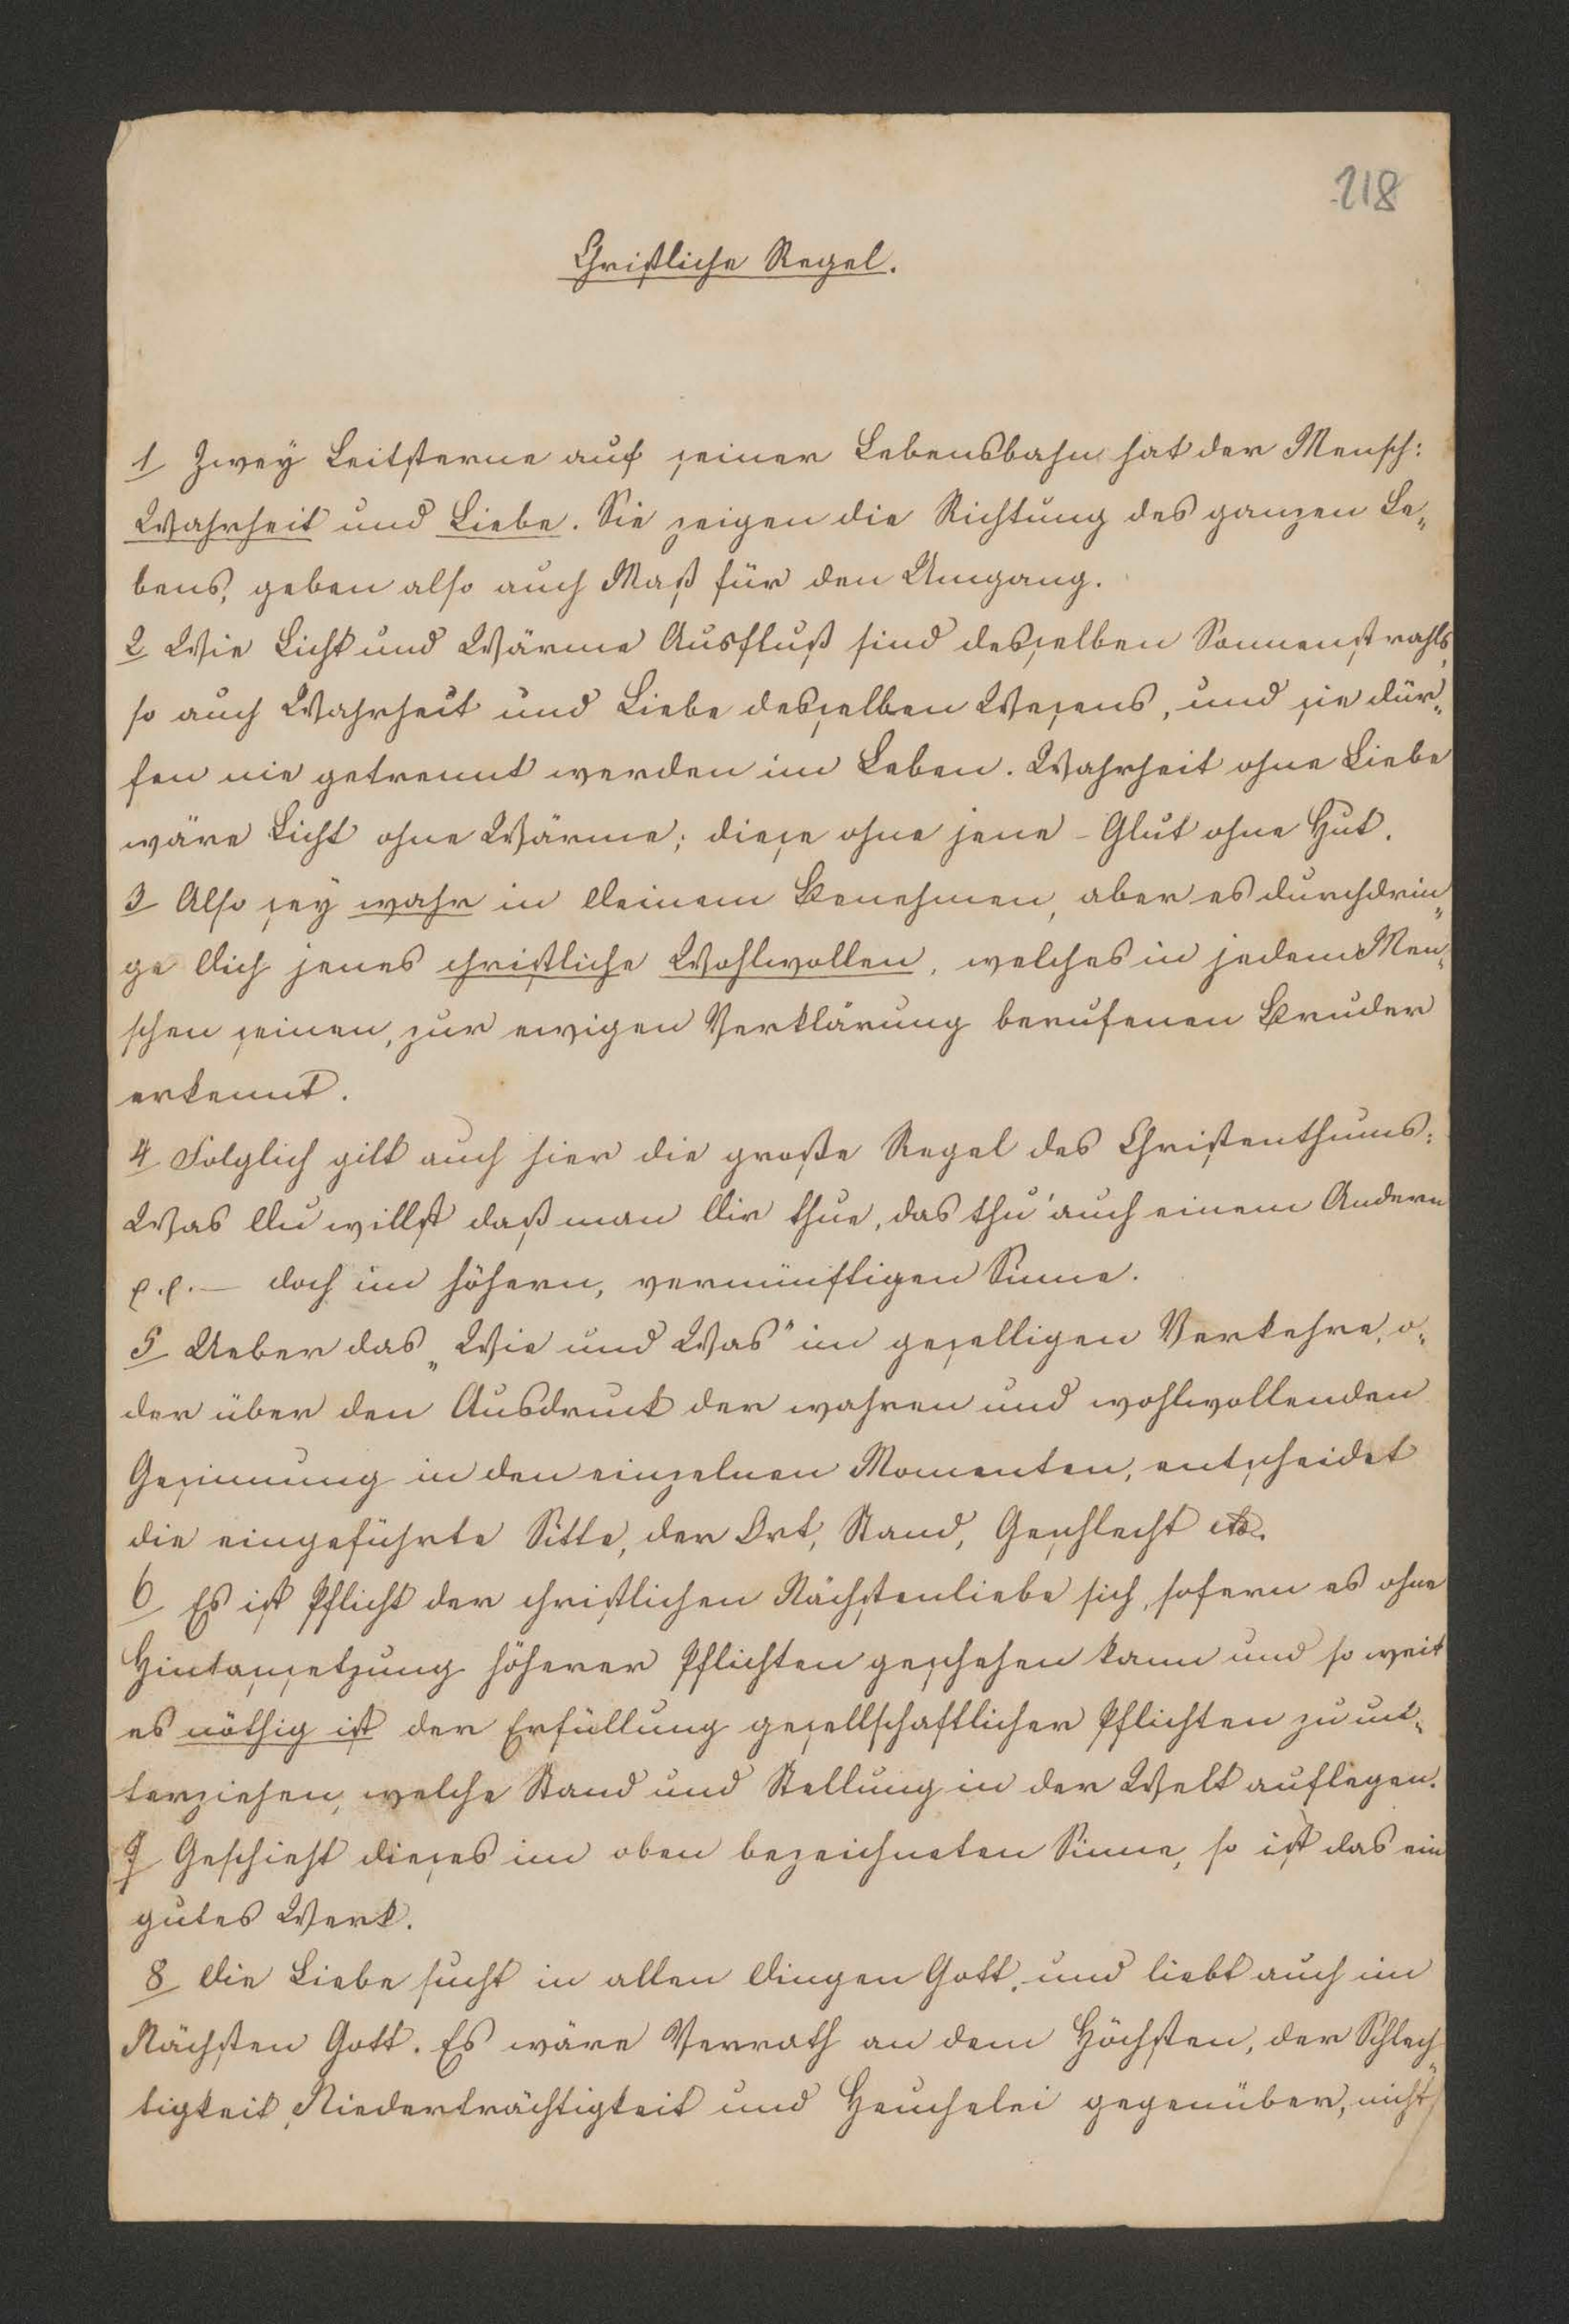 218
Christliche Regel.
1 Zwey Leitsterne auf seiner Lebensbahn hat der Mensch:
Wahrheit und Liebe. Sie zeigen die Richtung des ganzen Le-
bens, geben also auch Maß für den Umgang.
2 Wie Licht und Wärme Ausfluß sind desselben Sonnenstrahls,
so auch Wahrheit und Liebe desselben Wesens, und sie dür-
fen nie getrennt werden im Leben. Wahrheit ohne Liebe
wäre Licht ohne Wärme; diese ohne jene - Glut ohne Hut.
3 Also sey wahr in Deinem Benehmen, aber es durchdrin-
ge Dich jenes christliche Wohlwollen, welches in jedem Men-
schen seinen, zur ewigen Verklärung berufenen Bruder
erkennt.
4 Folglich gilt auch hier die große Regel des Christenthums:
Was Du willst daß man Dir thue, das thu' auch einem Andern
p.p. — doch im höhern, vernünftigen Sinne.
5 Ueber das „Wie und Was" im geselligen Verkehre, o-
der über den Ausdruck der wahren und wohlwollenden
Gesinnung in den einzelnen Momenten, entscheidet
die eingeführte Sitte, der Ort, Stand, Geschlecht etc.
6 Es ist Pflicht der christlichen Nächstenliebe sich, sofern es ohne
Hintansetzung höherer Pflichten geschehen kann und so weit
es nöthig ist der Erfüllung gesellschaftlicher Pflichten zu un-
terziehen, welche Stand und Stellung in der Welt auflegen.
7 Geschieht dieses im oben bezeichneten Sinne, so ist das ein
gutes Werk.
8 Die Liebe sucht in allen Dingen Gott, und liebt auch im
Nächsten Gott. Es wäre Verrath an dem Höchsten, der Schlech-
tigkeit, Niederträchtigkeit und Heuchelei gegenüber, nicht